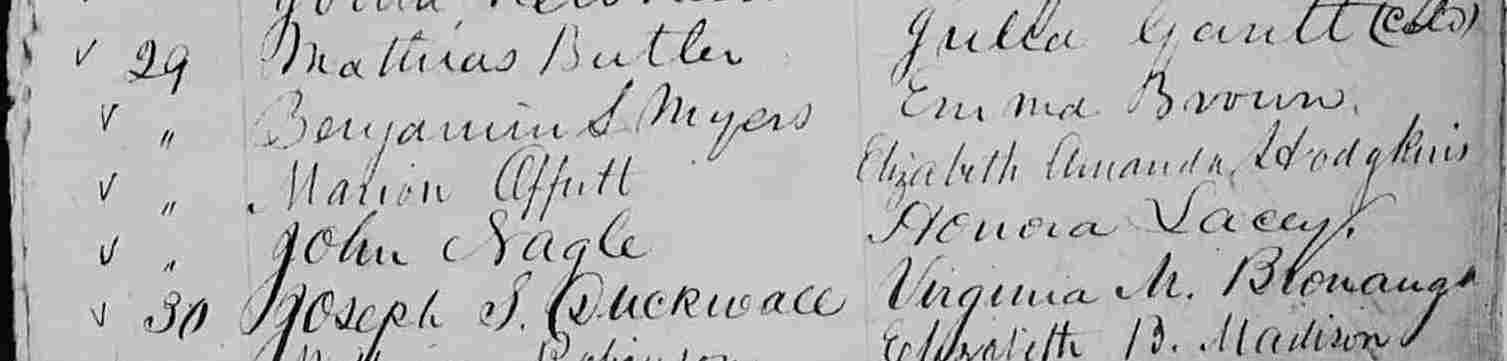 ✓ 29 Mathias Butler Julia Gantt (Cold)
✓ " Benjamin S Myers Emma Brown.
✓ " Marion Offutt Elizabeth Amanda Hodgkins
✓ " John Nagle Honora Lacey.
✓ 30 Joseph S. Duckwall Virginia M. Bronaugh
Elizabeth B. Madison